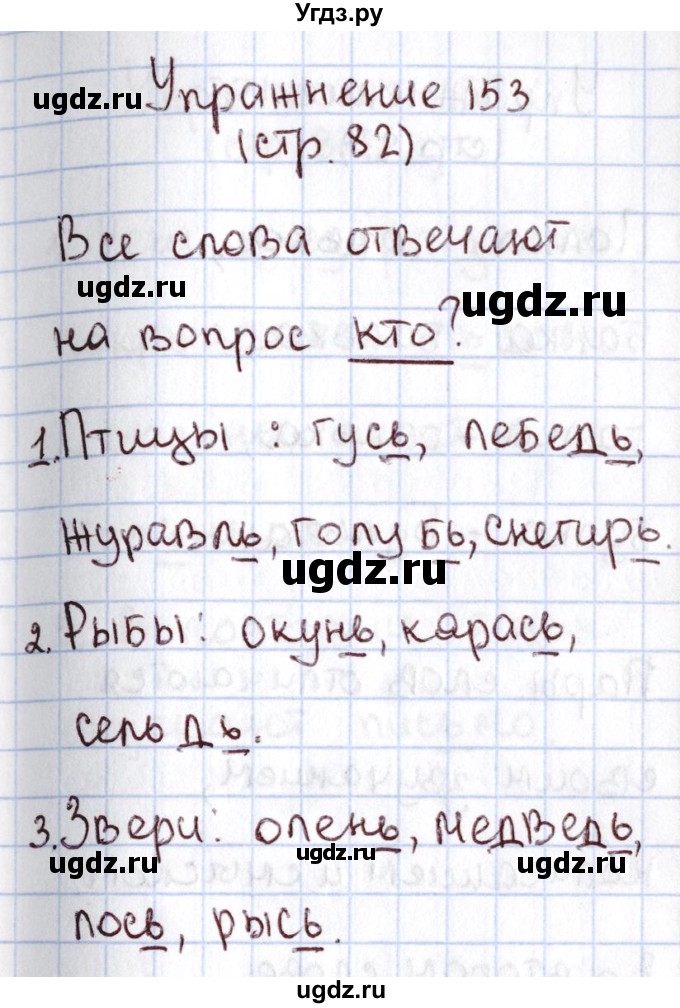 Угдз.ру
Упражнение 153
ugdz.ru
(стр. 82)
Все слова отвечают
ugdz.ru ugdz.ru
на вопрос кто?
1. Птицы: гусь, лебедь,
журавль, голубь, снегирь.
ugdz.ru
2. Рыбы: окунь, карась,
сельдь.
3. Звери: олень, медведь,
ugdz.ru ugdz.ru ugdz.ru
лось, рысь.
ugdz.ru